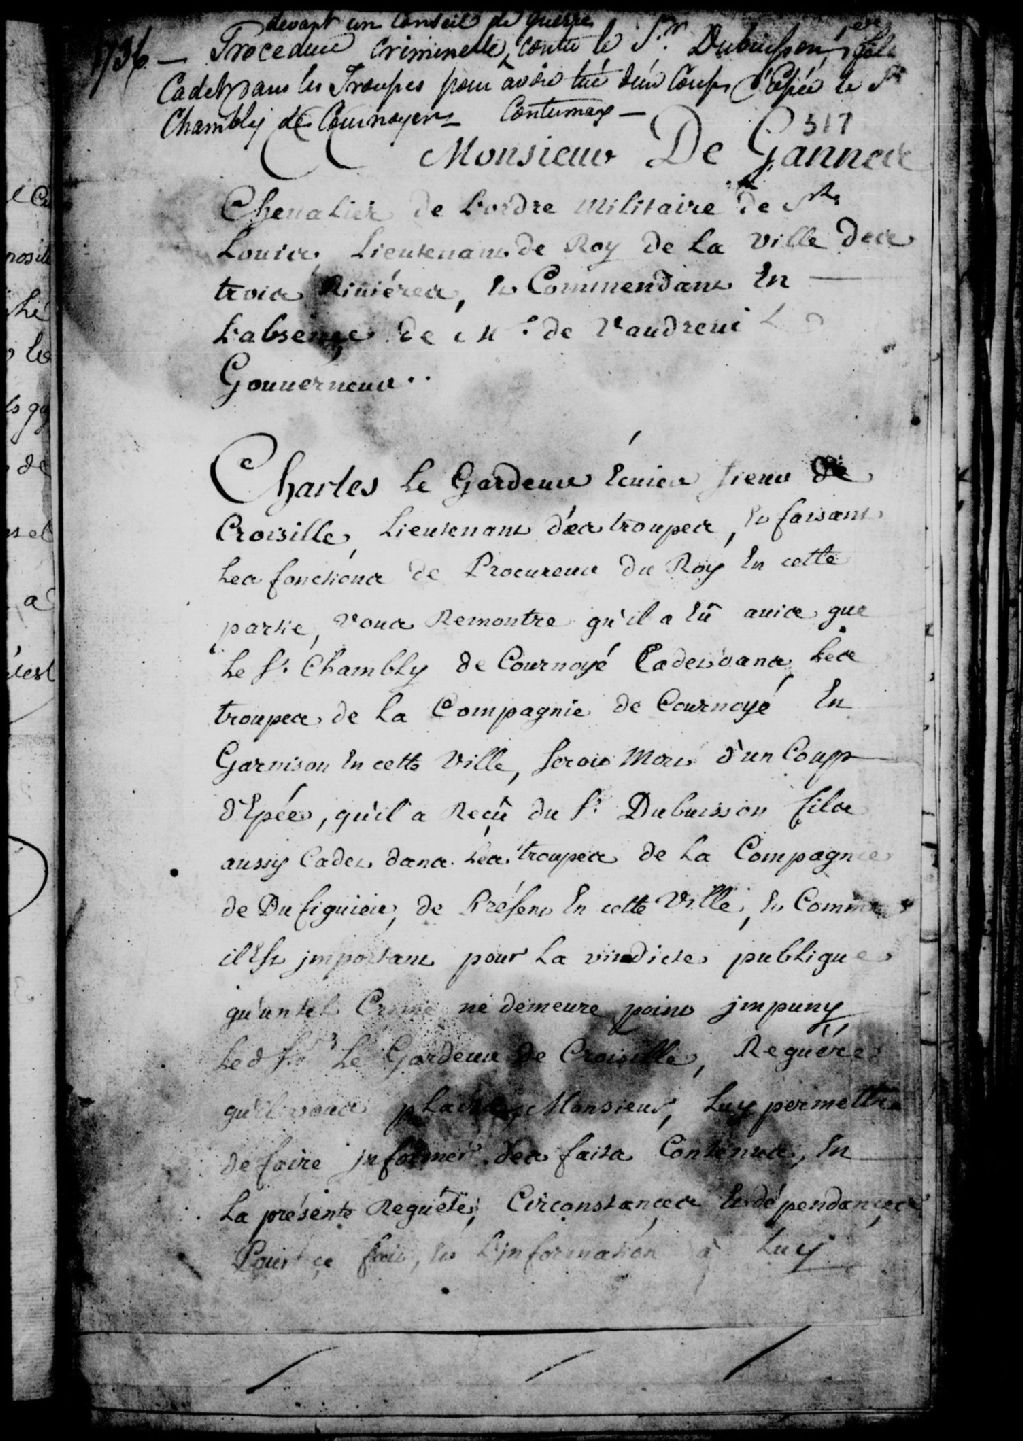 devant un Conseil de guerre
1736. — Procedure criminelle, contre le Sr. Dubuisson, fils
Cadet dans les Troupes pour avoir tué d'un Coup d'Epée le Sr.
Chambly de Cournoyer — Contumax —
317
Monsieur De Gannes
Chevalier de l'ordre Militaire de St.
Louis, Lieutenant de Roy de La Ville des
trois Rivières, et Commendant En
L'absence de Mr. de Vaudreuil
Gouverneur..
Charles Le Gardeur Ecuier Sieur de
Croisille, Lieutenant des troupes, et faisant
Les fonctions de Procureur du Roy En cette
partie, Vous Remontre qu'il a Eû avis que
Le Sr. Chambly de Cournoyé Cadet dans les
troupes de La Compagnie de Cournoyé En
Garnison En cette Ville, seroit Mort d'un Coup
d'Epée, qu'il a Reçû du Sr. Dubuisson fils
aussy Cadet dans les troupes de La Compagnie
de Du figuier, de Présent En cette Ville, et Comme
il Est jmportant pour La vindicte publique
qu'un tel Crime ne demeure point jmpuny
Led. Sr. Le Gardeur de Croisille, Requére
qu'il vous plaise, Monsieur, Luy permettre
de faire jnformer des faits Contenus, En
La présente Requête, Circonstances Et dépendances
Pour ce fait, et L'jnformation à Luy